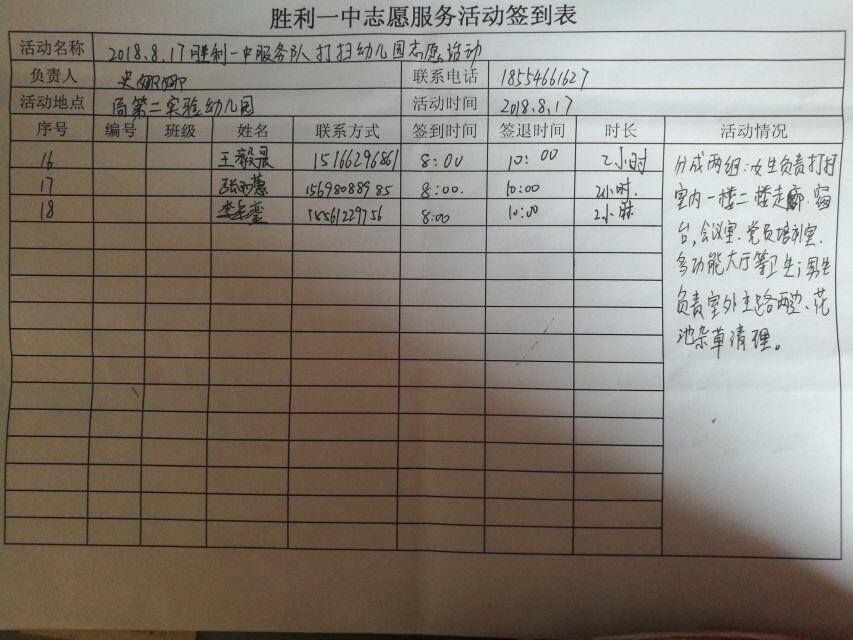 胜利一中志愿服务活动签到表
活动名称 2018.8.17胜利一中服务队打扫幼儿园志愿活动
负责人 史娜娜 联系电话 18554661627
活动地点 局第二实验幼儿园 活动时间 2018.8.17
序号 编号 班级 姓名 联系方式 签到时间 签退时间 时长 活动情况
16 王毅晨 15166296861 8:00 10:00 2小时
17 15698088985 8:00. 10:00 2小时.
18 15561229756 8:00 10:00 2小时
分成两组:女生负责打扫
室内一楼二楼走廊.窗
台,会议室.党员培训室.
多功能大厅等卫生;男生
负责室外主路两边、花
池杂草清理。